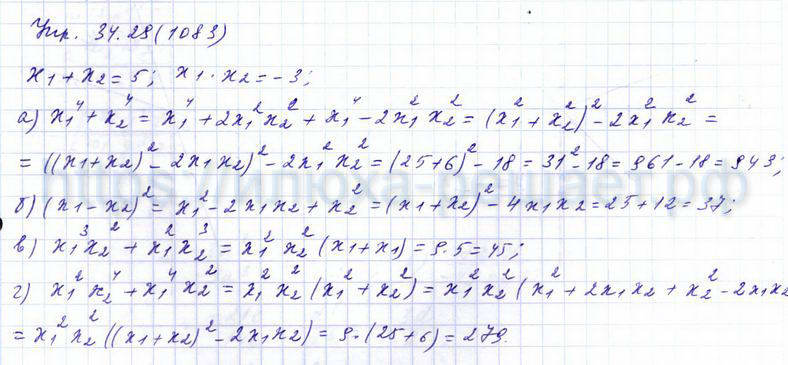 Упр. 34.29(1083)
x₁ + x₂ = 5; x₁ · x₂ = -3;
а) x₁⁴ + x₂⁴ = x₁⁴ + 2x₁²x₂² + x₁⁴ - 2x₁² x₂² = (x₁² + x₂²)² - 2x₁² x₂² =
= ((x₁+x₂)² - 2x₁x₂)² - 2x₁² x₂² = (25+6)² - 18 = 31² - 18 = 961 - 18 = 943;
б) (x₁ - x₂)² = x₁² - 2x₁x₂ + x₂² = (x₁+x₂)² - 4x₁x₂ = 25 + 12 = 37;
в) x₁³x₂² + x₁²x₂³ = x₁² x₂² (x₁+x₁) = 9·5 = 45;
г) x₁² x₂⁴ + x₁⁴ x₂² = x₁² x₂² (x₁² + x₂²) = x₁²x₂² (x₁² + 2x₁x₂ + x₂² - 2x₁x₂
= x₁² x₂² ((x₁+x₂)² - 2x₁x₂) = 9·(25+6) = 279.